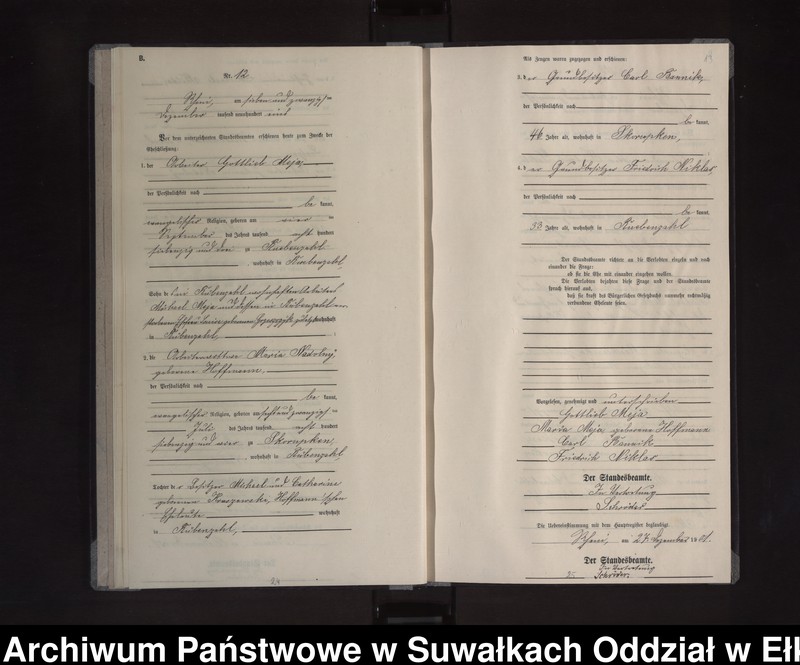 B.
Nr. 12.
am sieben und zwanzigsten
Dezember tausend neunhundert eins
Vor dem unterzeichneten Standesbeamten erschienen heute zum Zwecke der
Eheschließung:
1. der Arbeiter Gottlieb Meja,
der Persönlichkeit nach
be kannt,
evangelischer Religion, geboren am vier
September des Jahres tausend acht hundert
siebenzig und drei zu Ruebenzahl
, wohnhaft in Ruebenzahl,
Sohn des in Rübenzahl wohnhaften Arbeiters
Michael Meja und dessen in Rübenzahl ver-
storbenen Ehefrau Louise geborenen
in Rübenzahl,
2. die Arbeiterwittwe Maria Nadolny
geborene Hoffmann,
der Persönlichkeit nach
be kannt,
evangelischer Religion, geboren am sechs und zwanzigsten
Juli des Jahres tausend acht hundert
siebenzig und vier zu Skorupken,
, wohnhaft in Rübenzahl
Tochter der Besitzer Michael und Catharine
geborenen Hoffmann'schen
Eheleute wohnhaft
in Rübenzahl,
Als Zeugen waren zugezogen und erschienen:
3. der Grundbesitzer Carl Bannik,
der Persönlichkeit nach
be kannt,
46 Jahre alt, wohnhaft in Skorupken,
4. der Grundbesitzer Friedrich Niklas,
der Persönlichkeit nach
be kannt,
33 Jahre alt, wohnhaft in Ruebenzahl
Der Standesbeamte richtete an die Verlobten einzeln und nach
einander die Frage:
ob sie die Ehe mit einander eingehen wollen.
Die Verlobten bejahten diese Frage und der Standesbeamte
sprach hierauf aus,
daß sie kraft des Bürgerlichen Gesetzbuchs nunmehr rechtmäßig
verbundene Eheleute seien.
Vorgelesen, genehmigt und unterschrieben
Gottlieb Meja
Maria Meja geborene Hoffmann
Carl Bannik
Friedrich Niklas
Der Standesbeamte.
In Vertretung
Schröder
Die Uebereinstimmung mit dem Hauptregister beglaubigt.
am 27. Dezember 1901.
Der Standesbeamte.
In Vertretung
Schröder
Archiwum Państwowe w Suwałkach Oddział w Ełk